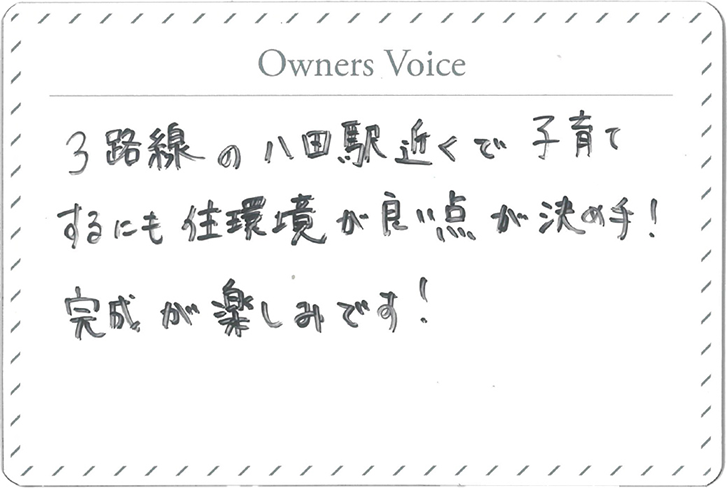 Owners Voice
3路線の八田駅近くで子育て
するにも住環境が良い点が決め手!
完成が楽しみです!